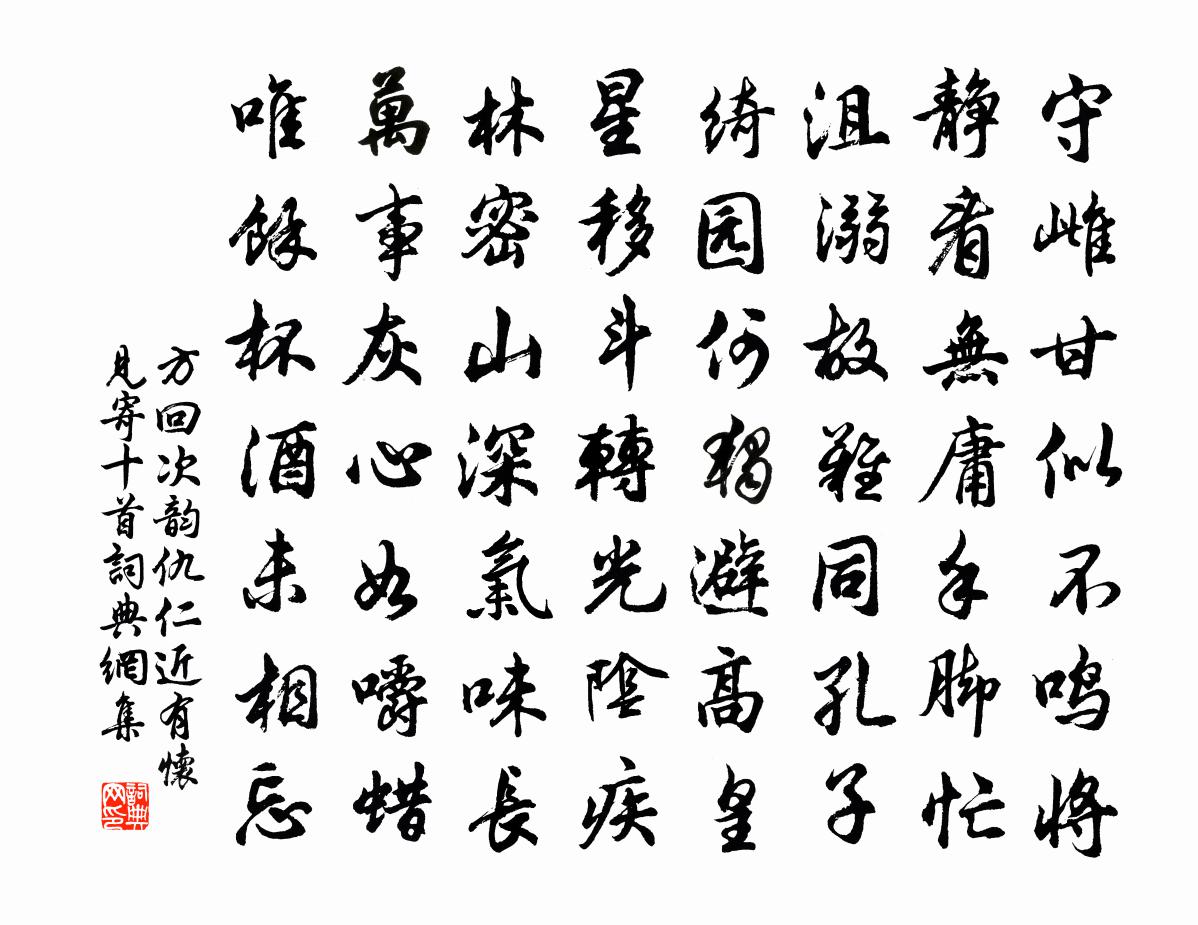 守雌甘似不鸣将
静看無庸手脚忙
沮溺故難同孔子
绮园何独避高皇
星移斗轉光陰疾
林密山深氣味長
萬事灰心如嚼蜡
唯餘杯酒未相忘
方回次韵仇仁近有懷
見寄十首詞典網集
詞典
网印